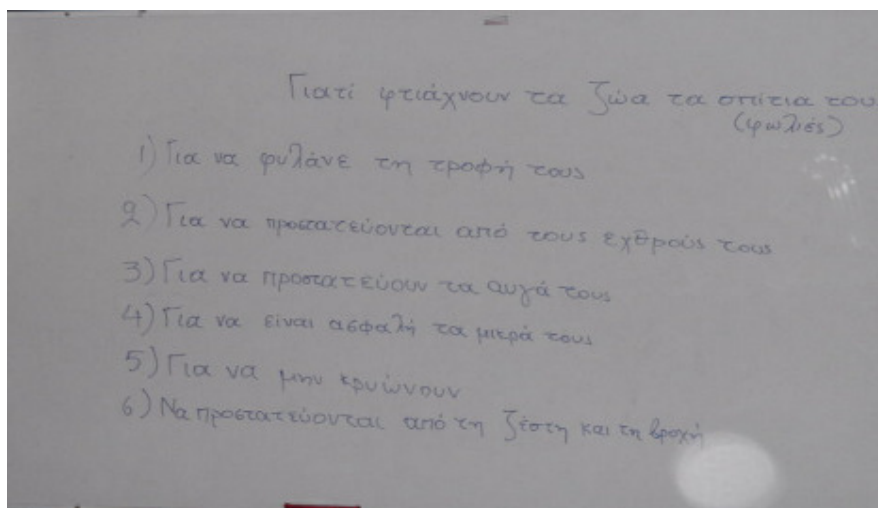 Γιατί φτιάχνουν τα ζώα τα σπίτια του
(φωλιές)
1) Για να φυλάνε τη τροφή τους
2) Για να προστατεύονται από τους εχθρούς τους
3) Για να προστατεύουν τα αυγά τους
4) Για να είναι ασφαλή τα μικρά τους
5) Για να μην κρυώνουν
6) Να προστατεύονται από τη ζέστη και τη βροχή